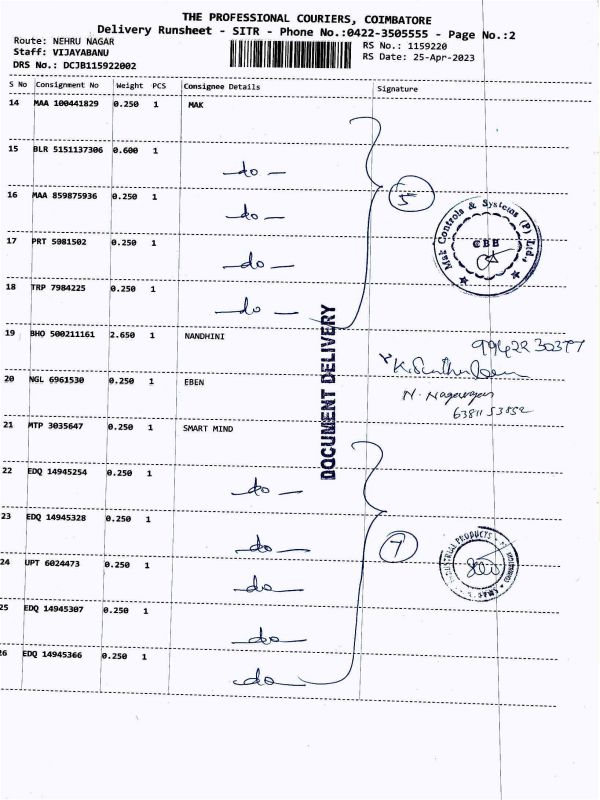 THE PROFESSIONAL COURIERS, COIMBATORE
Delivery Runsheet - SITR - Phone No.:0422-3505555 - Page No.:2
Route: NEHRU NAGAR
RS No.: 1159220
Staff: VIJAYABANU
RS Date: 25-Apr-2023
DRS No.: DCJB115922002
S No Consignment No Weight PCS Consignee Details Signature
14 MAA 100441829 0.250 1 MAK
15 BLR 5151137306 0.600 1
do
16 MAA 859875936 0.250 1
do
5
Mak Controls & Systems (P) Ltd.,
CBE
17 PRT 5081502 0.250 1
do
18 TRP 7984225 0.250 1
do
DOCUMENT DELIVERY
19 BHO 500211161 2.650 1 NANDHINI
20 NGL 6961530 0.250 1 EBEN
N. Nagarajan
21 MTP 3035647 0.250 1 SMART MIND
22 EDQ 14945254 0.250 1
do
23 EDQ 14945328 0.250 1
do
7
24 UPT 6024473 0.250 1
do
25 EDQ 14945307 0.250 1
do
26 EDQ 14945366 0.250 1
do